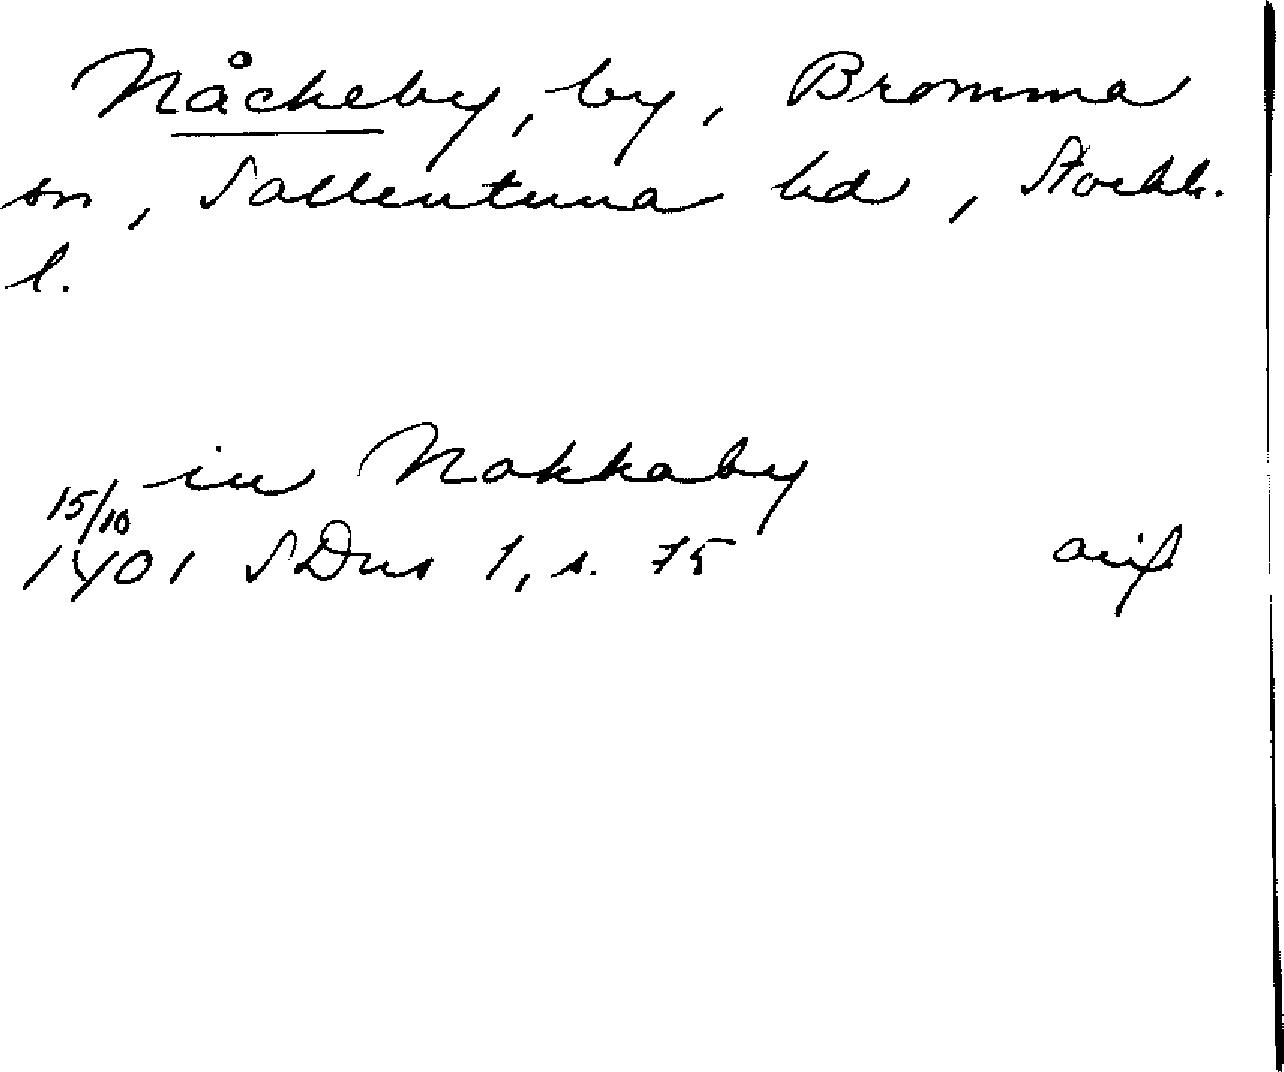 Nåckeby, by, Bromma
sn, Sollentuna hd, Stockh.
l.
in Nakkaby
15/10
1401 SDns 1, s. 75